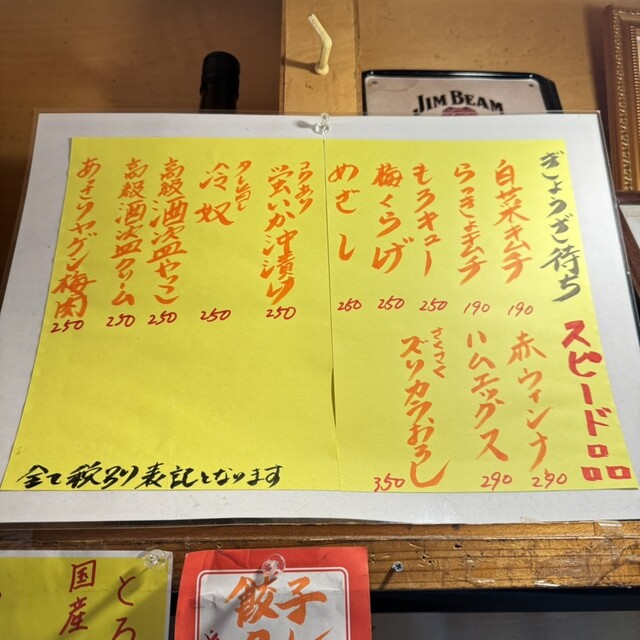 JIM BEAM
ぎょうざ待ち
スピード品
白菜キムチ
190
らっきょキムチ
190
もろキュー
250
梅くらげ
250
めざし
260
赤ウインナー
290
ハムエッグス
290
さくさく
ズリカラおろし
350
蛍いか沖漬け
250
冷奴
250
高級酒盗やっこ
250
高級酒盗クリーム
250
あっさりヤゲン梅肉
250
全て税別表記となります
国産
と
餃子